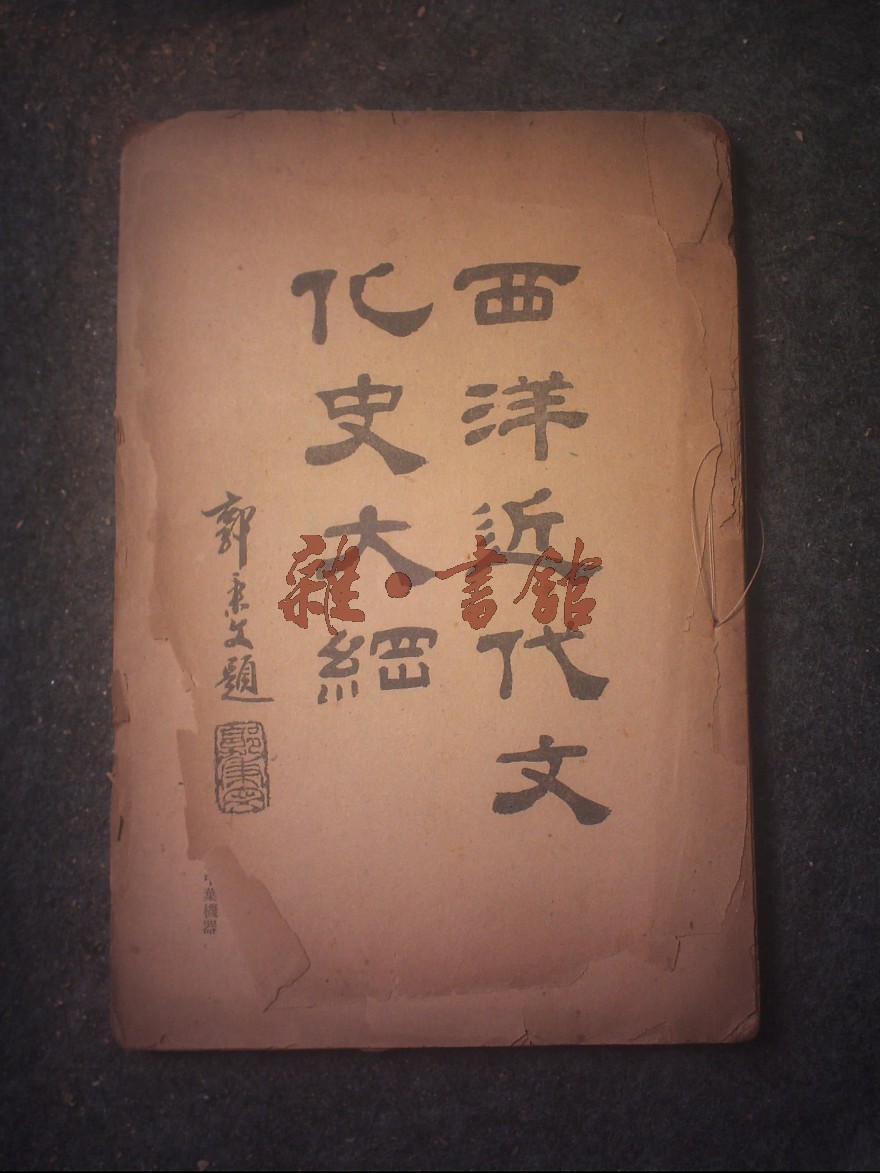 西洋近代文
化史大綱
郭秉文題
雜·書館
業機器